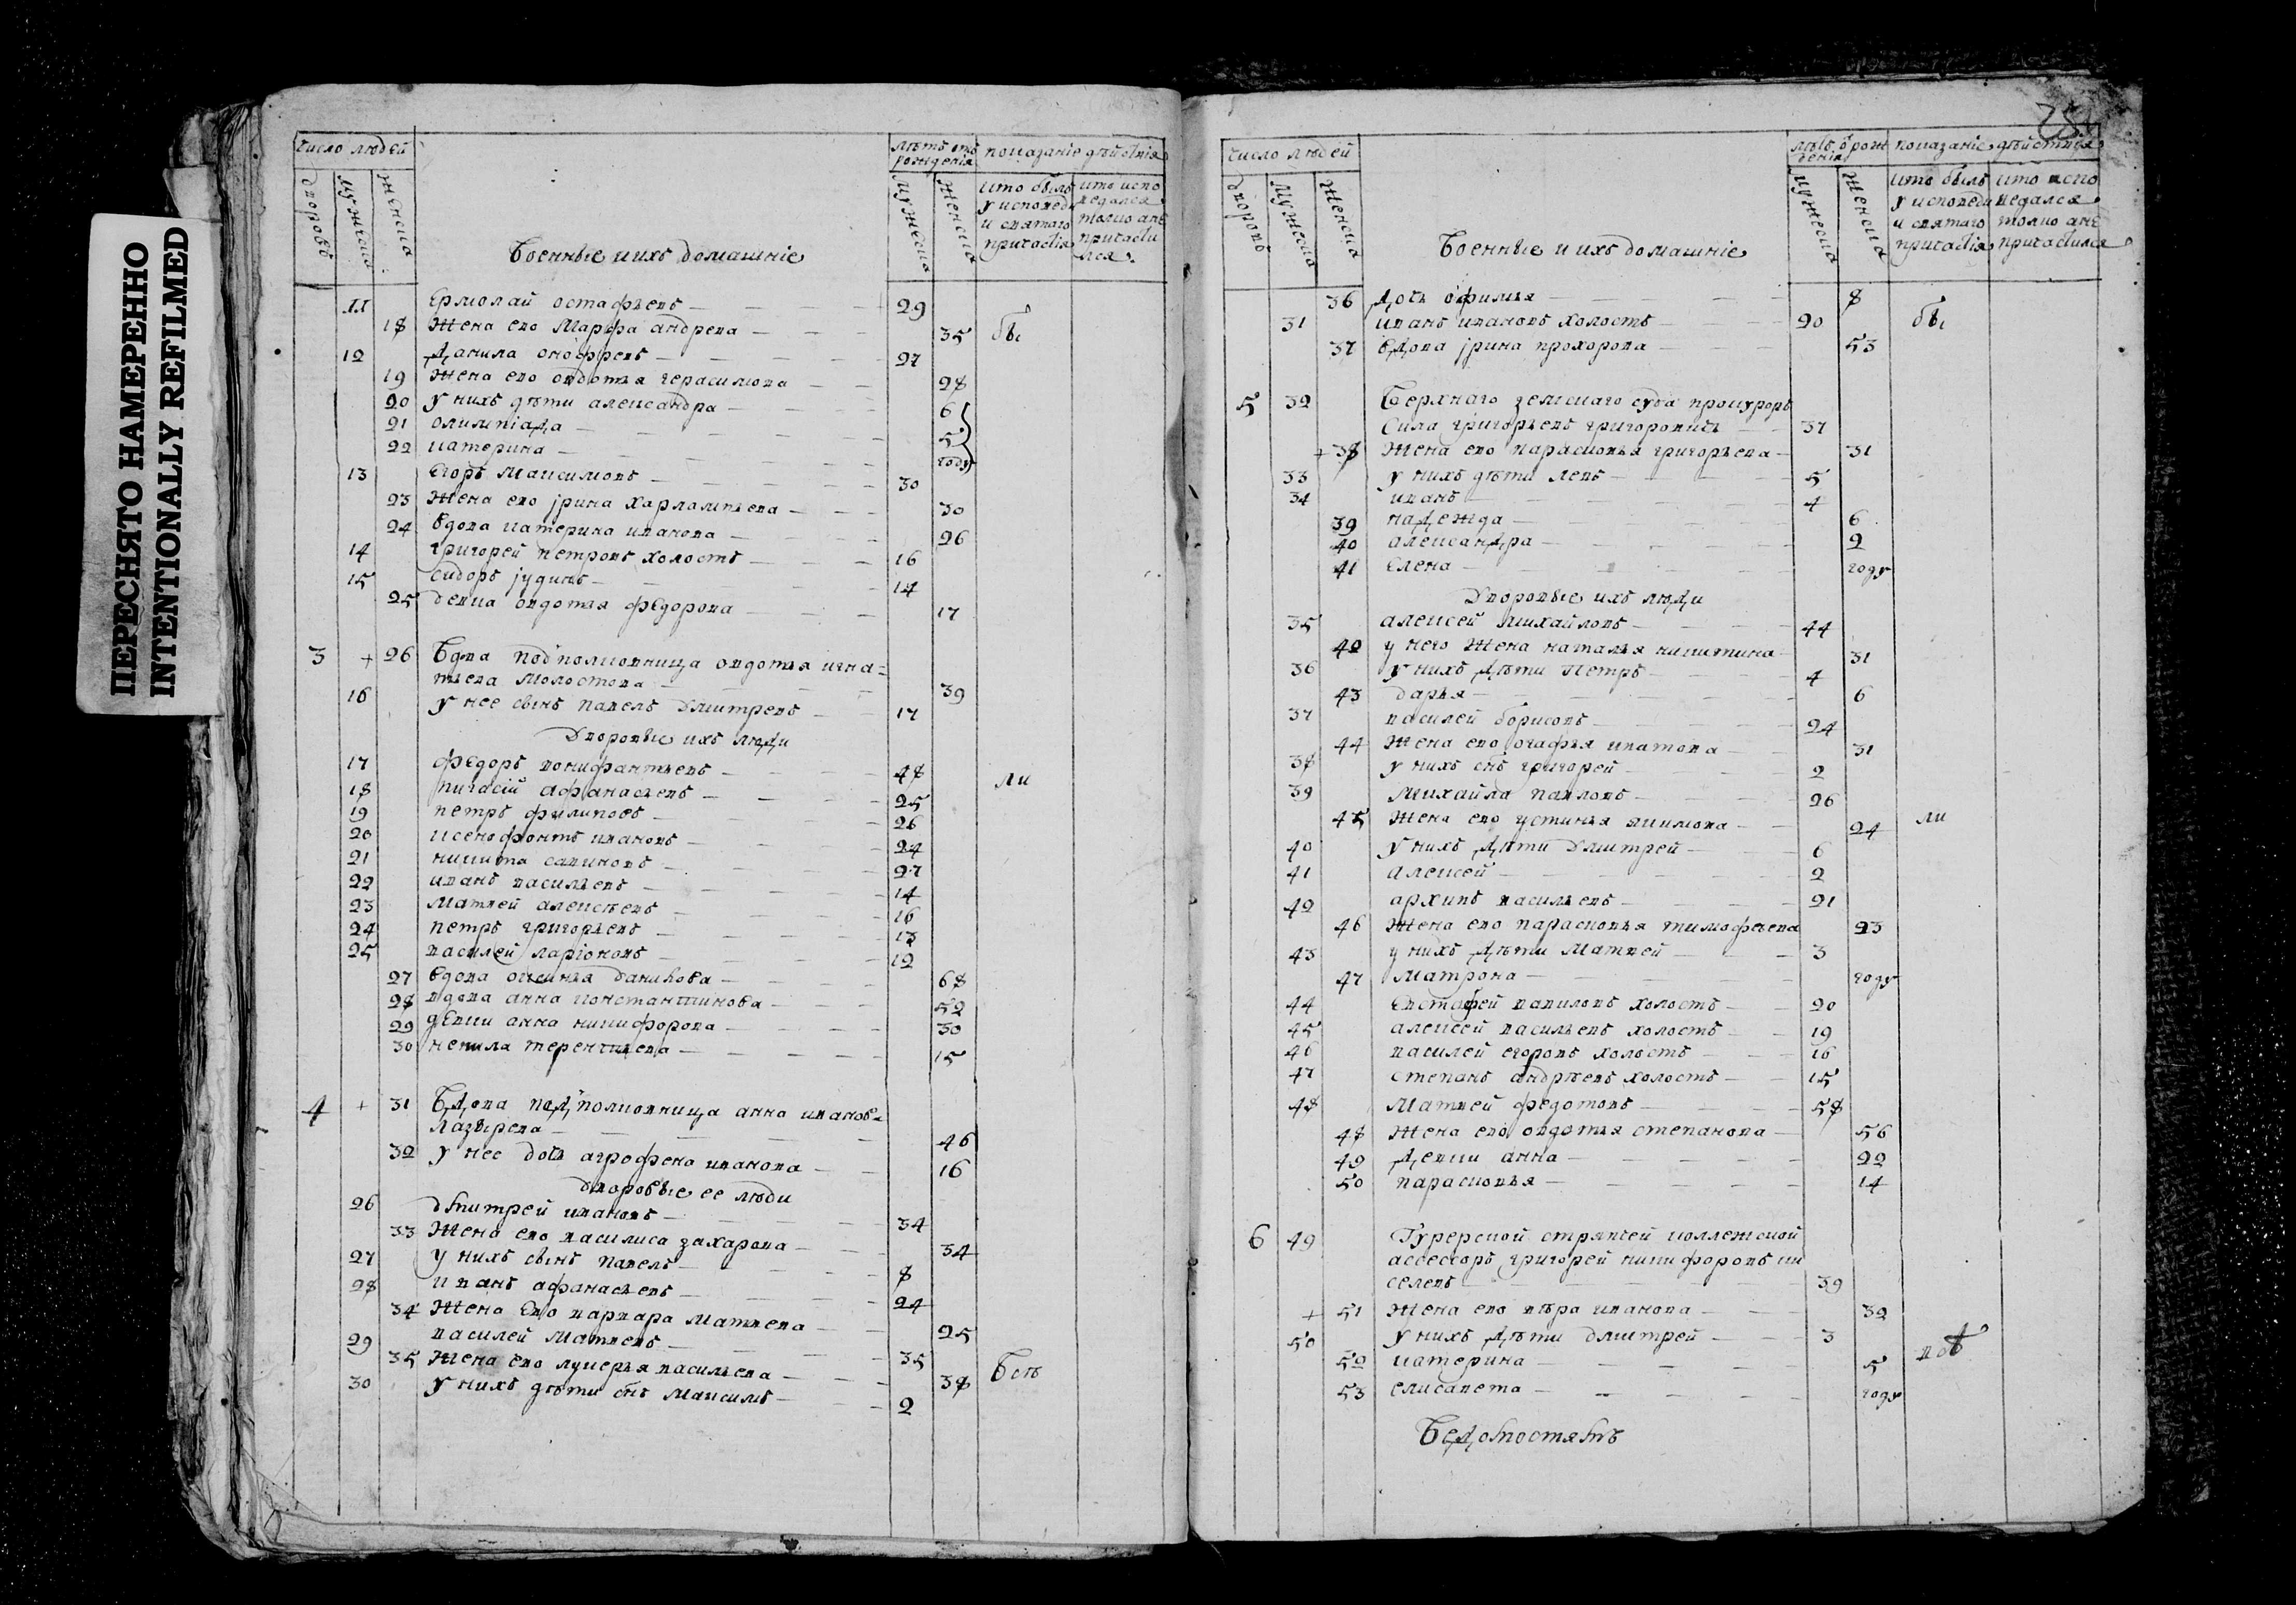 ПЕРЕСНЯТО НАМЕРЕННО
INTENTIONALLY REFILMED
число людей
дворовъ
мужеска
женска
Военные ихъ домашніе
лѣтъ отъ рожденія
мужеска
женска
показаніе дѣйствія
кто былъ у исповеди и святаго причастія
кто испо ведался токмо а не причасти лся
11 Ермолай остафьевъ 29
18 Жена ево Марфа андрева 35 бы
12 Данила онофревъ 27
19 Жена ево овдотья герасимова 28
20 У нихъ дѣти александра 6
21 олимпіада 5
22 катерина году
13 Егоръ Максимовъ 30
23 Жена ево ірина харлампьева 30
24 Вдова катерина иванова 26
14 григорей петровъ холостъ 16
15 Сидоръ іудинъ 14
25 девка овдотья федорова 17
3 + 26 Вдва подполковница овдотья игна=
тьева Молостова 39
16 У нее сынъ павелъ дмитревъ 17
Дворовые ихъ люди
17 федоръ вонифантьевъ 48 ли
18 никасій афанасьевъ 25
19 петръ филиповъ 26
20 ксенофонтъ ивановъ 24
21 никита савиновъ 27
22 иванъ васильевъ 14
23 Матвей алексѣевъ 16
24 петръ григорьевъ 13
25 василей ларіоновъ 12
27 вдова оксинья данилова 68
28 вдова анна константинова 52
29 девки анна никифорова 30
30 ненила терентьева 15
4 + 31 Вдова подполковница анна иванов=
Лазырева 46
32 У нее дочь агрофена иванова 16
дворовые ее люди
26 дмитрей ивановъ 34
33 Жена ево василиса захарова 34
27 У нихъ сынъ павелъ 8
28 Иванъ афанасьевъ 24
34 Жена Ево варвара Матвева 25
29 василей Матвевъ 35
35 Жена ево лукерья васильева 38 Всѣ
30 У нихъ дѣти снъ Максимъ 2
254
число людей
дворовъ
мужеска
женска
Военные и ихъ домашніе
лѣтъ ѿ рожденія
мужеска
женска
показаніе дѣйствія
кто былъ у исповеди и святаго причастія
кто испо ведался токмо а не причастился
36 Дочь офимья 8
31 иванъ ивановъ холостъ 20 бы
37 Вдова ірина прохорова 53
5 32 Верхнаго земскаго суда прокуроръ
Сила григорьевъ григоровичь 37
+ 38 Жена ево парасковья григорьева 31
33 у нихъ дѣти левъ 5
34 иванъ 4
39 надежда 6
40 александра 2
41 Елена году
Дворовые ихъ люди
35 алексей михайловъ 44
42 у него Жена наталья никитина 31
36 У нихъ дѣти петръ 4
43 дарья 6
37 василей борисовъ 24
44 Жена ево огафья ипатова 31
38 у нихъ снъ григорей 2
39 Михайла павловъ 26
45 Жена ево устинья якимова 24 ли
40 У нихъ дѣти дмитрей 6
41 алексей 2
42 архипъ васильевъ 21
46 Жена ево парасковья тимофеева 23
43 у нихъ дѣти Матвей 3
47 Матрона году
44 Евстафей вавиловъ холостъ 20
45 алексей васильевъ холостъ 19
46 василей егоровъ холостъ 16
47 степанъ андрѣевъ холостъ 15
48 Матвей федотовъ 58
48 Жена ево овдотья степанова 56
49 Девки анна 22
50 парасковья 14
6 49 Гуверской стряпчей коллежской
ассесоръ григорей никифоровъ ки
селевъ 39
+ 51 Жена ево вѣра иванова 32
50 У нихъ дѣти дмитрей 3
52 катерина 5
53 елисавета году